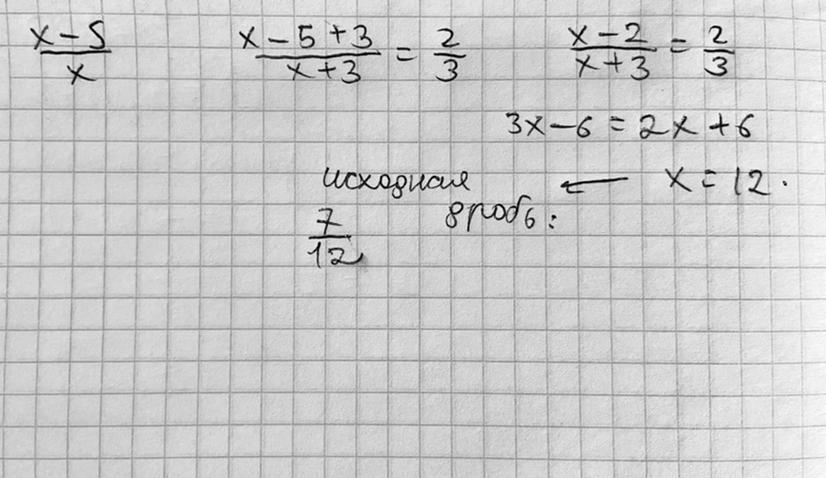 x-5/x   x-5+3/x+3 = 2/3   x-2/x+3 = 2/3
3x-6=2x+6
исходная ← x=12.
дробь:
7/12